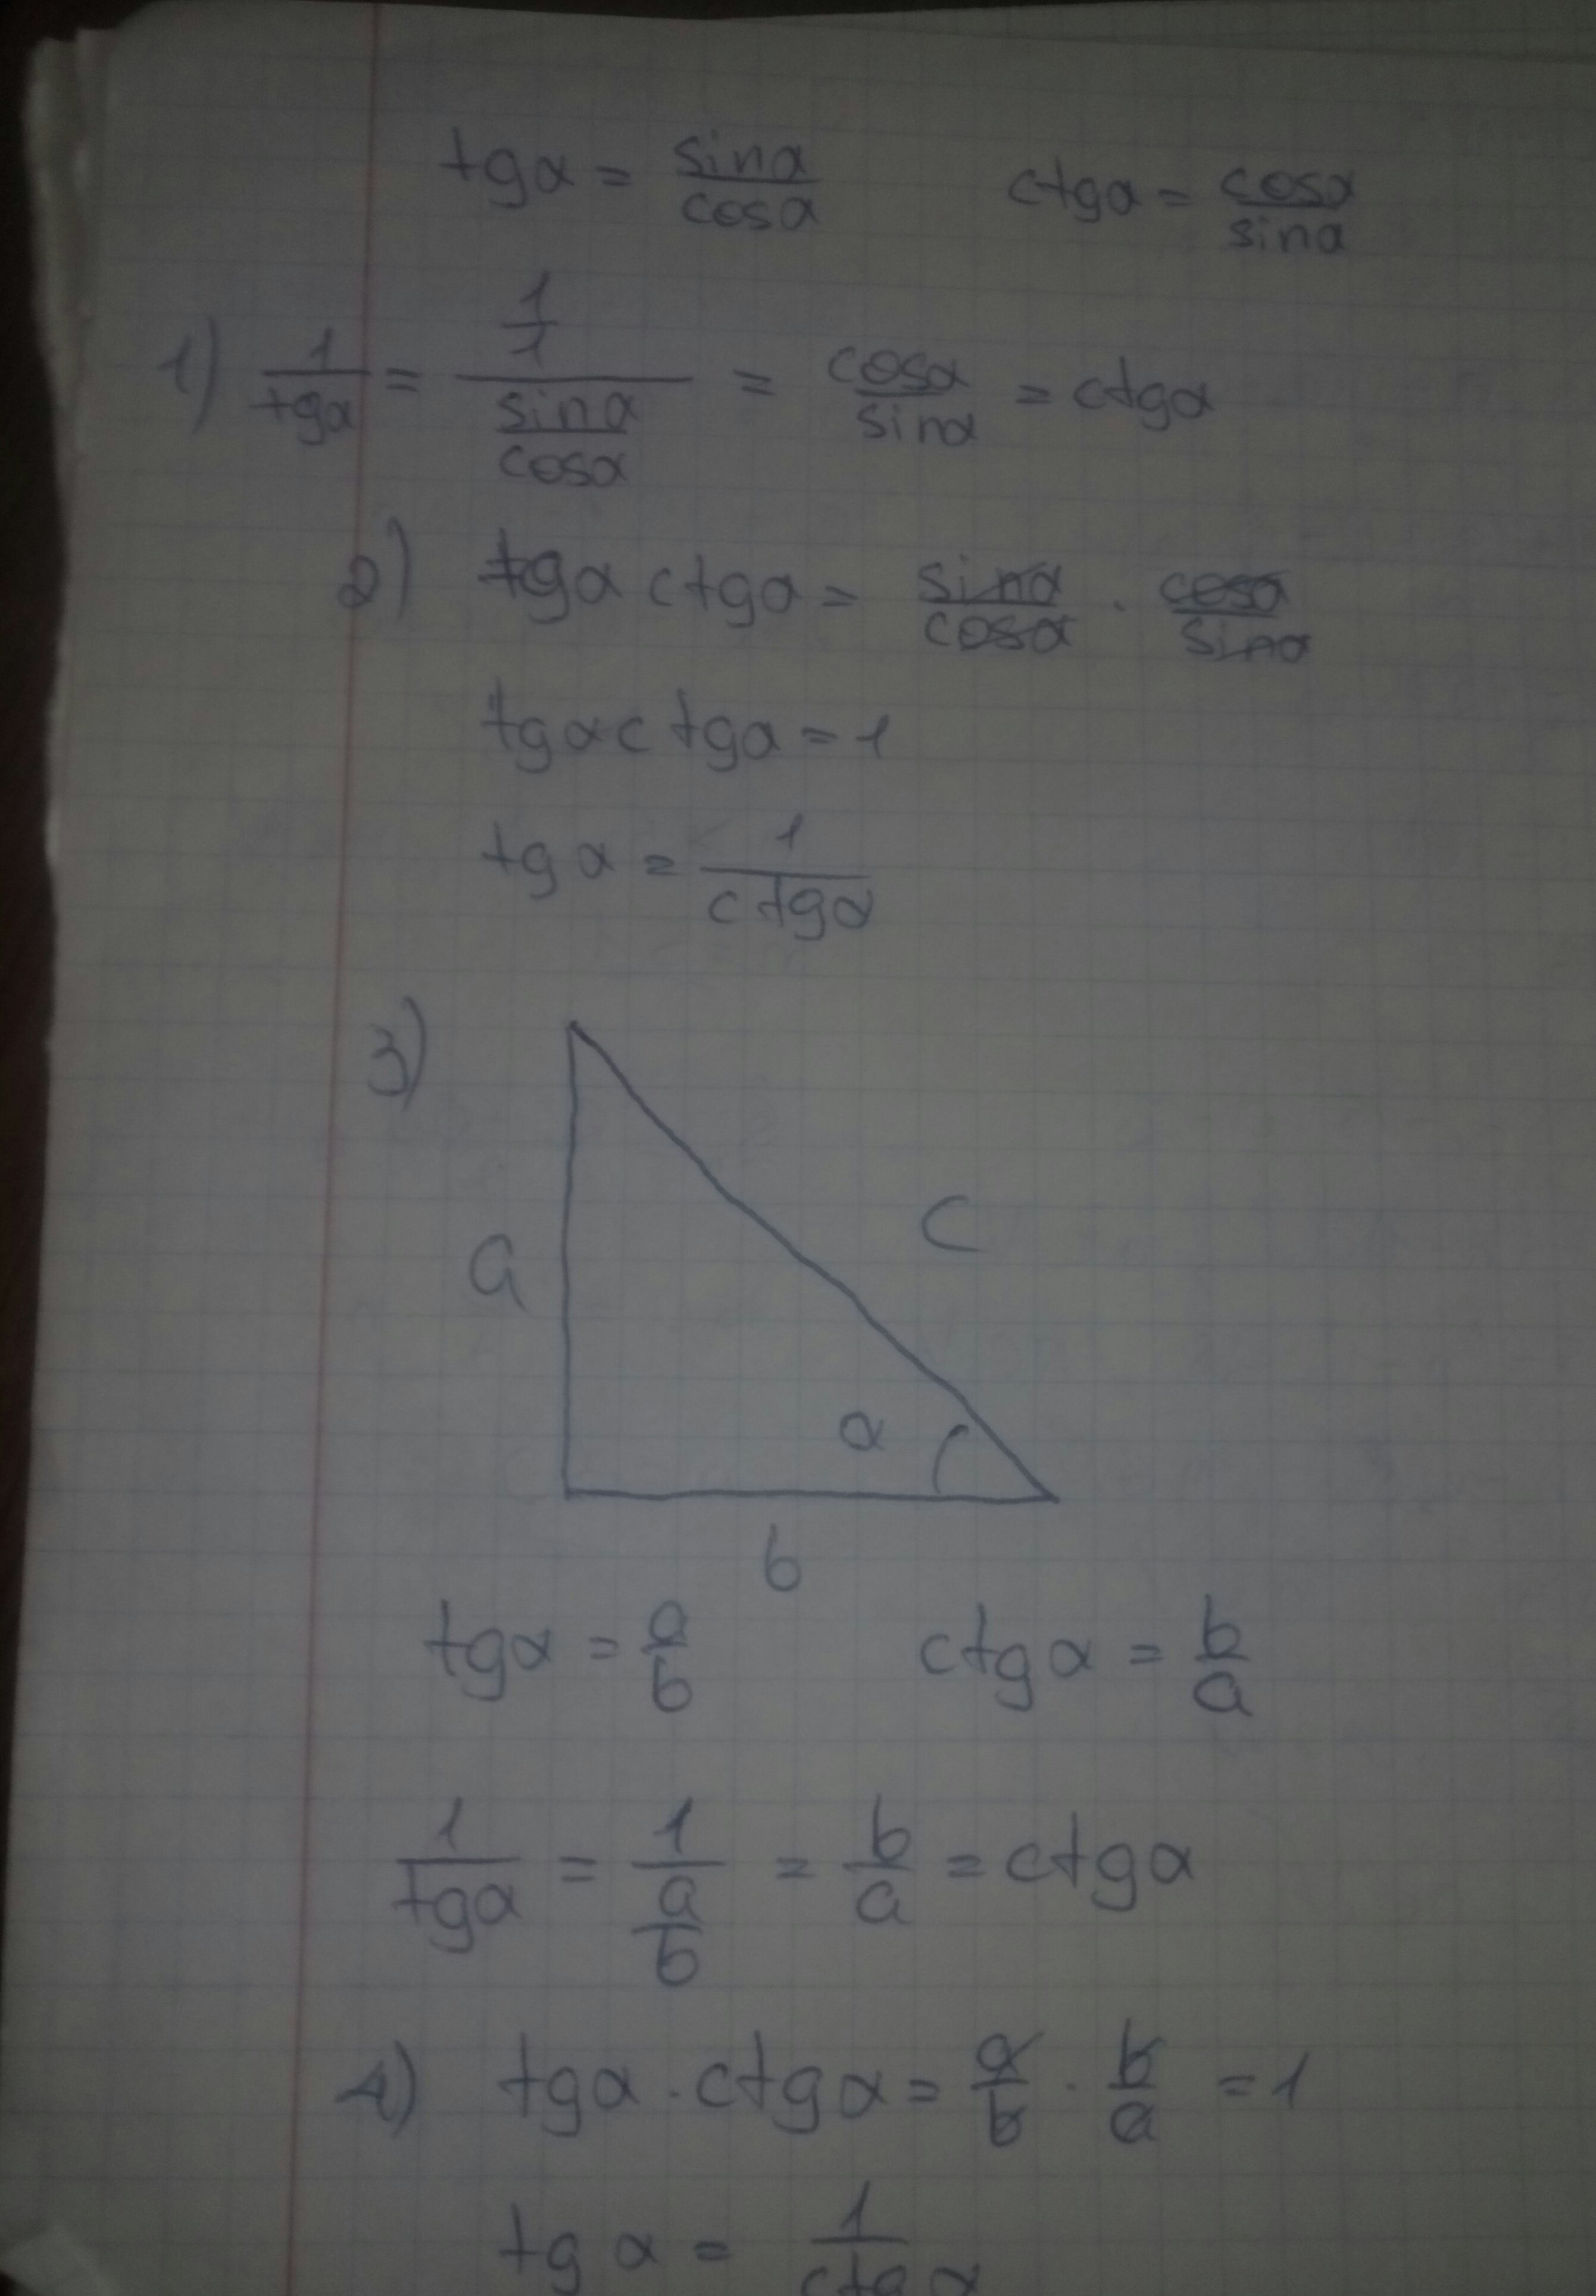 tgα = sinα/cosα    ctgα = cosα/sinα
1) 1/tgα = (1/1)/(sinα/cosα) = cosα/sinα = ctgα
2) tgα ctgα = sinα/cosα · cosα/sinα
tgα ctgα = 1
tgα = 1/ctgα
3)
a
c
α
b
tgα = a/b    ctgα = b/a
1/tgα = 1/(a/b) = b/a = ctgα
4) tgα · ctgα = a/b · b/a = 1
tgα = 1/ctgα